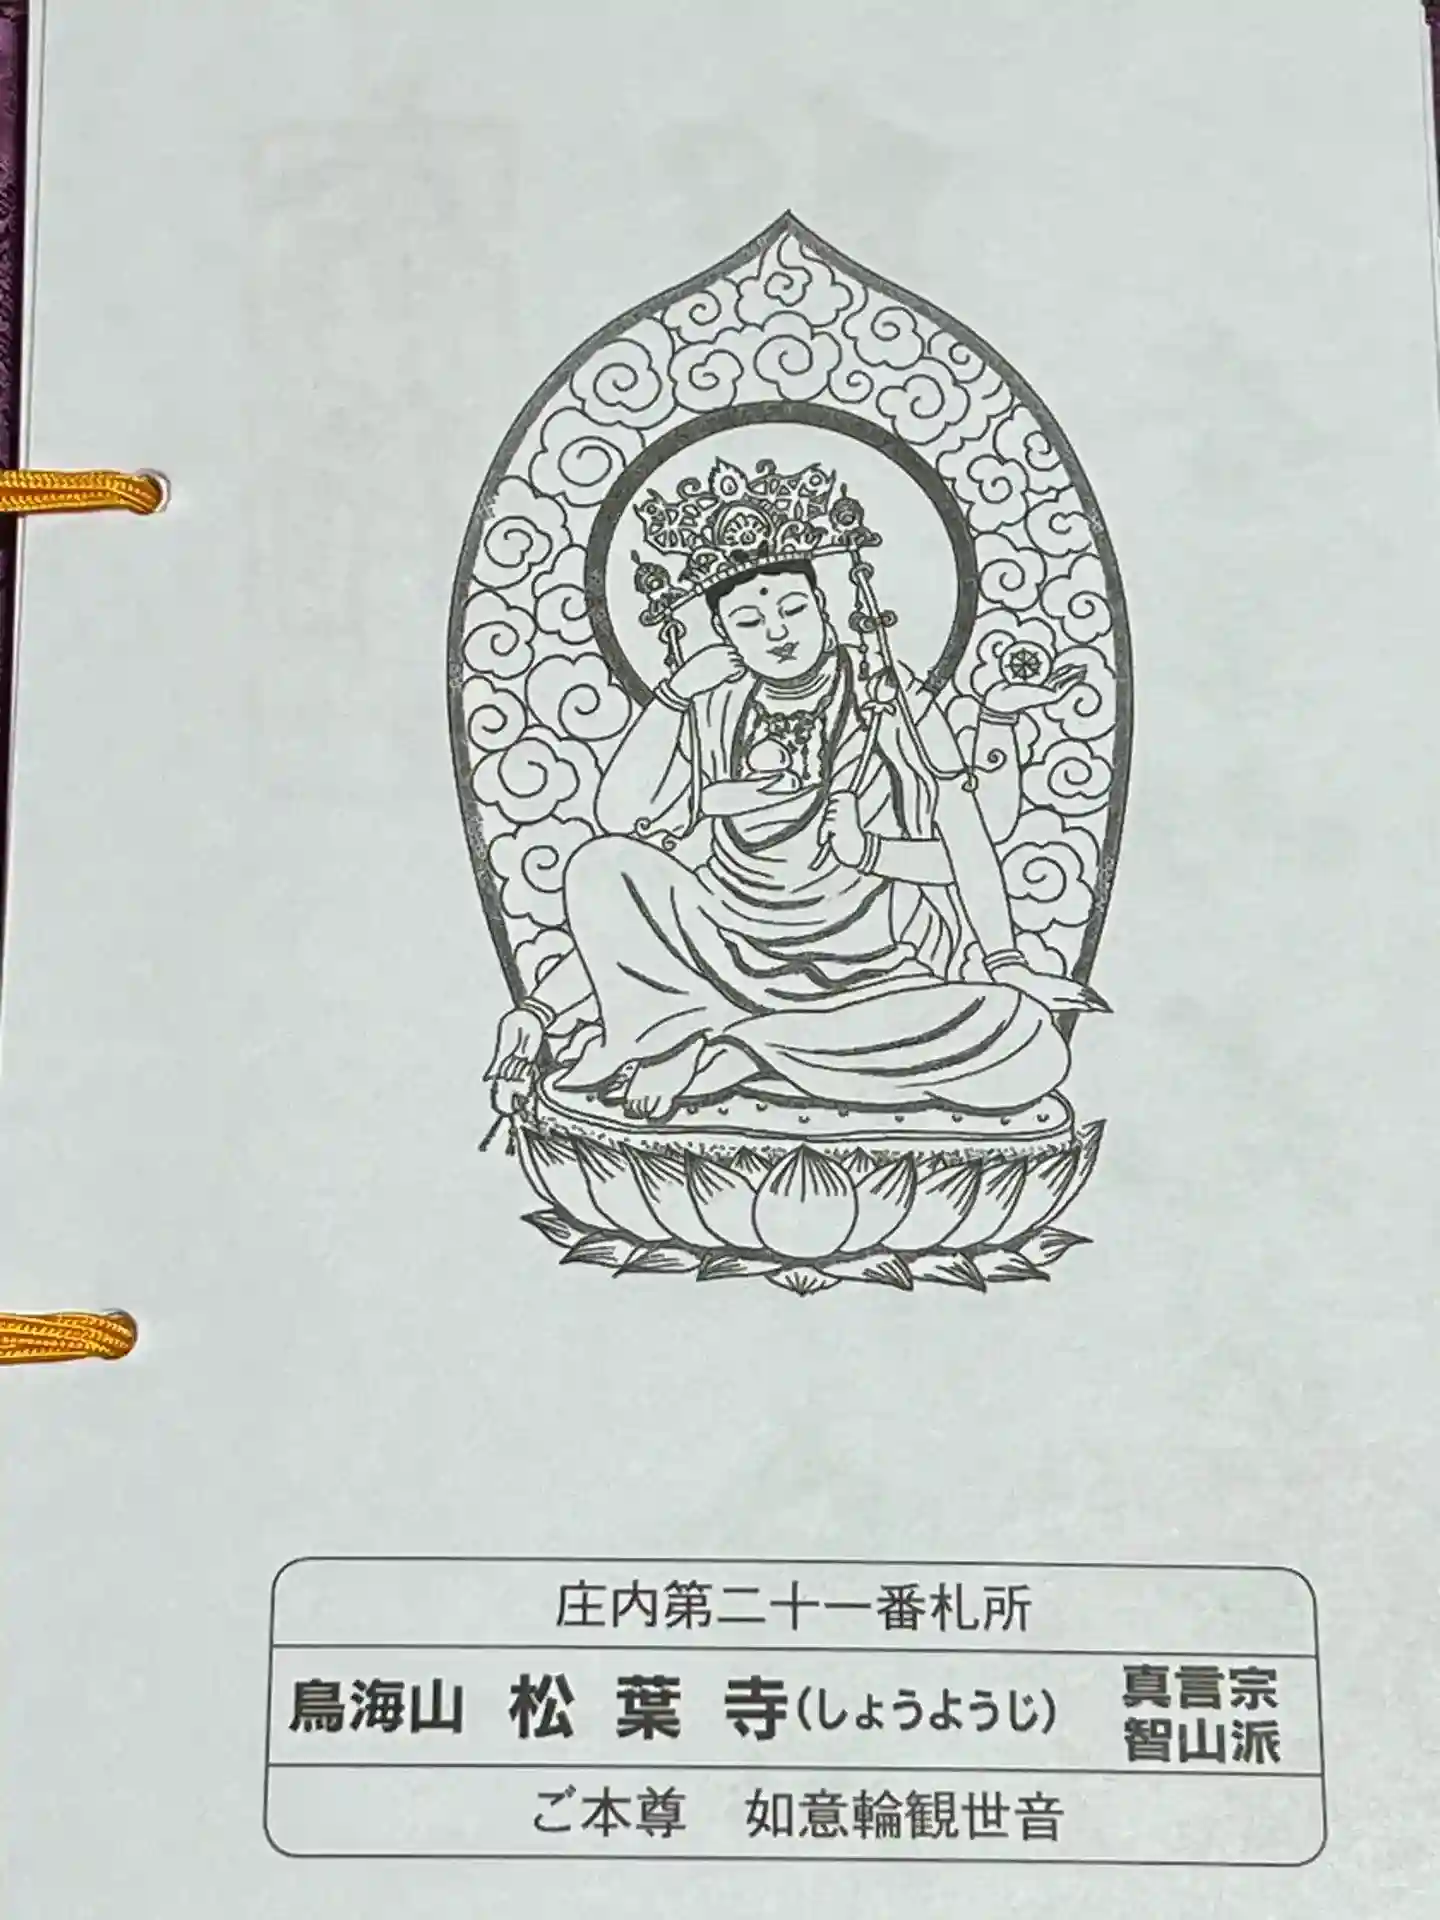 庄内第二十一番札所
鳥海山 松葉寺(しょうようじ) 真言宗
智山派
ご本尊 如意輪観世音